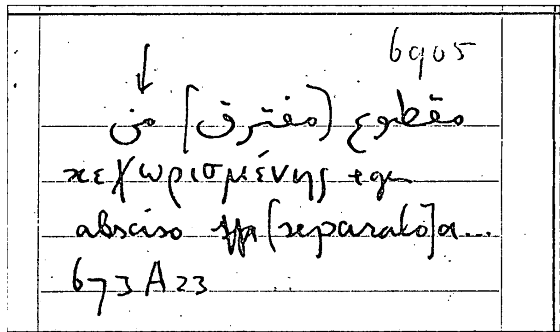 6905
مقطوع (مفترق] من
κεχωρισμένης
absciso [separato] a...
673 A 23